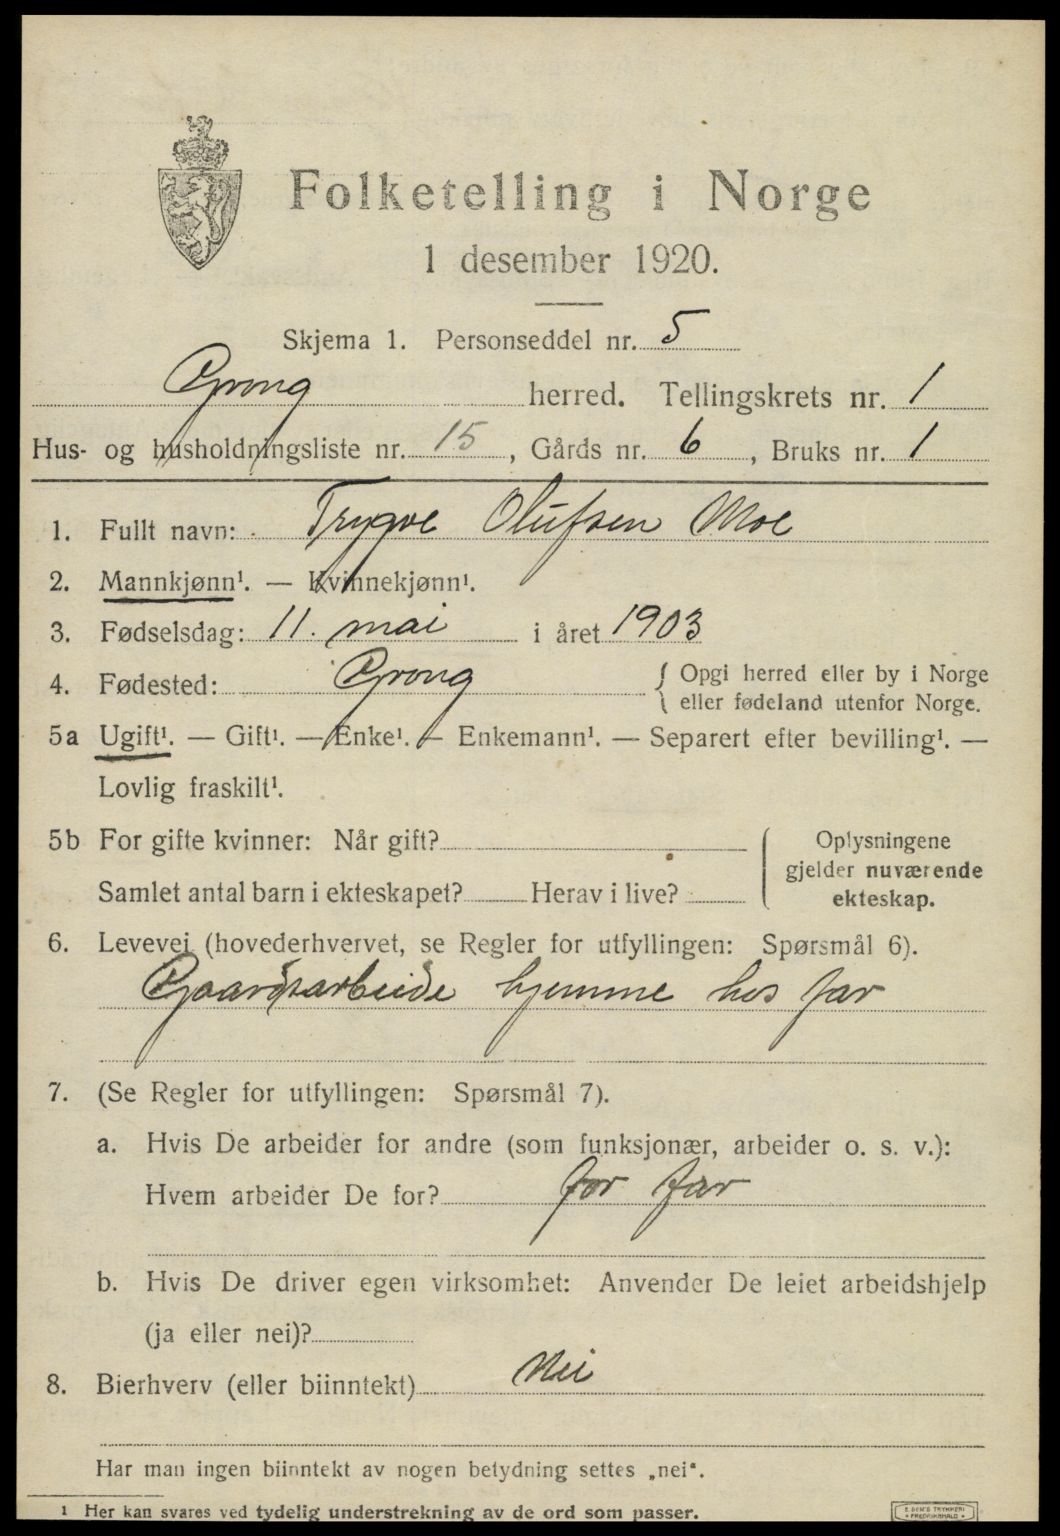 Folketelling i Norge
1 desember 1920.
Skjema 1. Personseddel nr. 5
Grong herred. Tellingskrets nr. 1
Hus- og husholdningsliste nr. 15, Gårds nr. 6, Bruks nr. 1
1. Fullt navn: Trygve Olufsen Moe
2. Mannkjønn¹. — Kvinnekjønn¹.
3. Fødselsdag: 11. mai i året 1903
4. Fødested: Grong { Opgi herred eller by i Norge
eller fødeland utenfor Norge.
5a Ugift¹. — Gift¹. — Enke¹. — Enkemann¹. — Separert efter bevilling¹. —
Lovlig fraskilt¹.
5b For gifte kvinner: Når gift?
Samlet antal barn i ekteskapet? Herav i live?
Oplysningene
gjelder nuværende
ekteskap.
6. Levevei (hovederhvervet, se Regler for utfyllingen: Spørsmål 6).
Gaardsarbeide hjemme hos far
7. (Se Regler for utfyllingen: Spørsmål 7).
a. Hvis De arbeider for andre (som funksjonær, arbeider o. s. v.):
Hvem arbeider De for? for far
b. Hvis De driver egen virksomhet: Anvender De leiet arbeidshjelp
(ja eller nei)?
8. Bierhverv (eller biinntekt) Nei
Har man ingen biinntekt av nogen betydning settes „nei".
1 Her kan svares ved tydelig understrekning av de ord som passer.
E. SEM'S TRYKKERI
FREDRIKSHALD